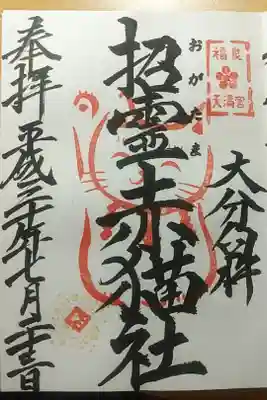 福良
天満宮
大分縣
おがたま
招霊赤猫社
奉拝
平成三十年七月二十三日